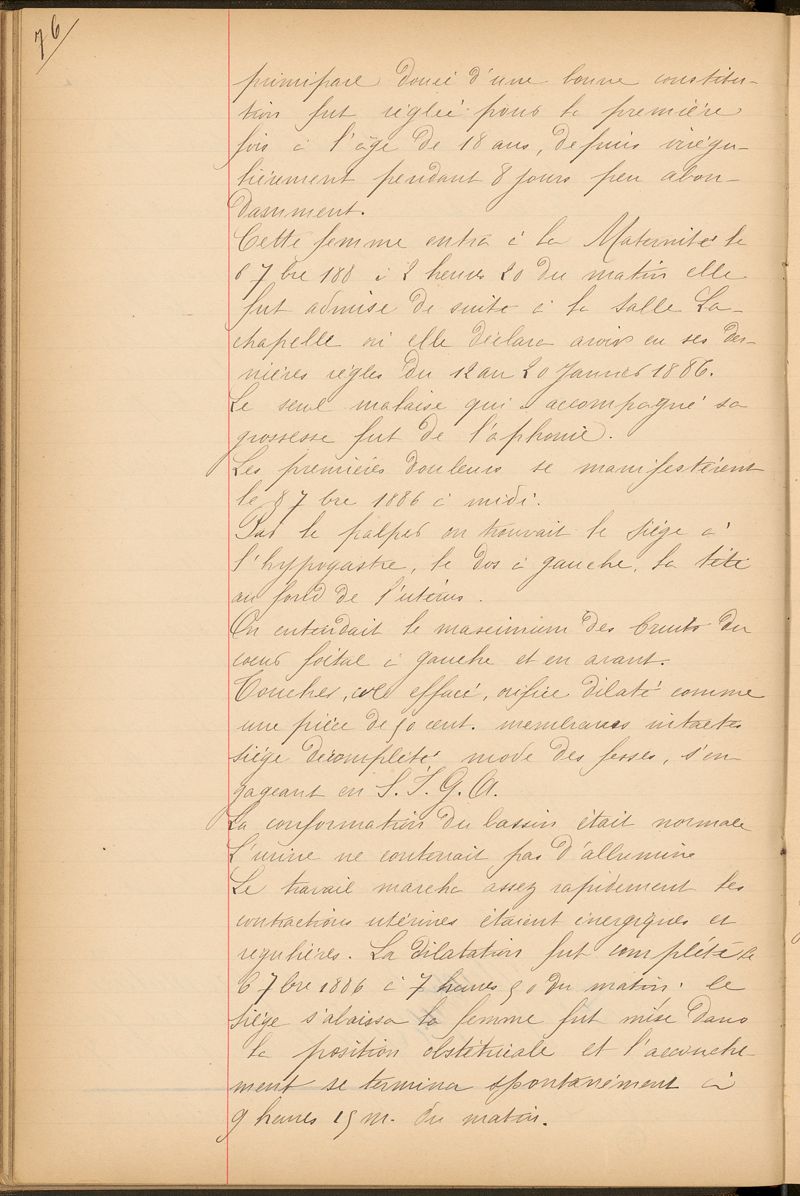 76
primipare douée d'une bonne constitu-
tion fut réglée pour la première
fois à l'âge de 18 ans, depuis irrégu-
lièrement pendant 8 jours peu abon-
damment.
Cette femme entra à la Maternité le
6 7bre 188 à 2 heures 20 du matin elle
fut admise de suite à la salle La-
chapelle où elle déclara avoir eu ses der-
nières règles du 12 au 20 Janvier 1886.
Le seul malaise qui a accompagné sa
grossesse fut de l'aphonie.
Les premières douleurs se manifestèrent
le 8 7bre 1886 à midi.
Par le palper on trouvait le siège à
l'hypogastre, le dos à gauche, la tête
au fond de l'utérus.
On entendait le maximum des bruits du
coeur foetal à gauche et en avant.
Toucher, col effacé, orifice dilaté comme
une pièce de 50 cent. membranes intactes
siège décomplété mode des fesses, s'en
gageant en S.I.G.A.
La conformation du bassin était normale
L'urine ne contenait pas d'albumine
Le travail marcha assez rapidement les
contractions utérines étaient énergiques et
régulières. La dilatation fut complète le
6 7bre 1886 à 7 heures 50 du matin. le
siège s'abaissa la femme fut mise dans
la position obstétricale et l'accouche-
ment se termina spontanément à
9 heures 15 m. du matin.